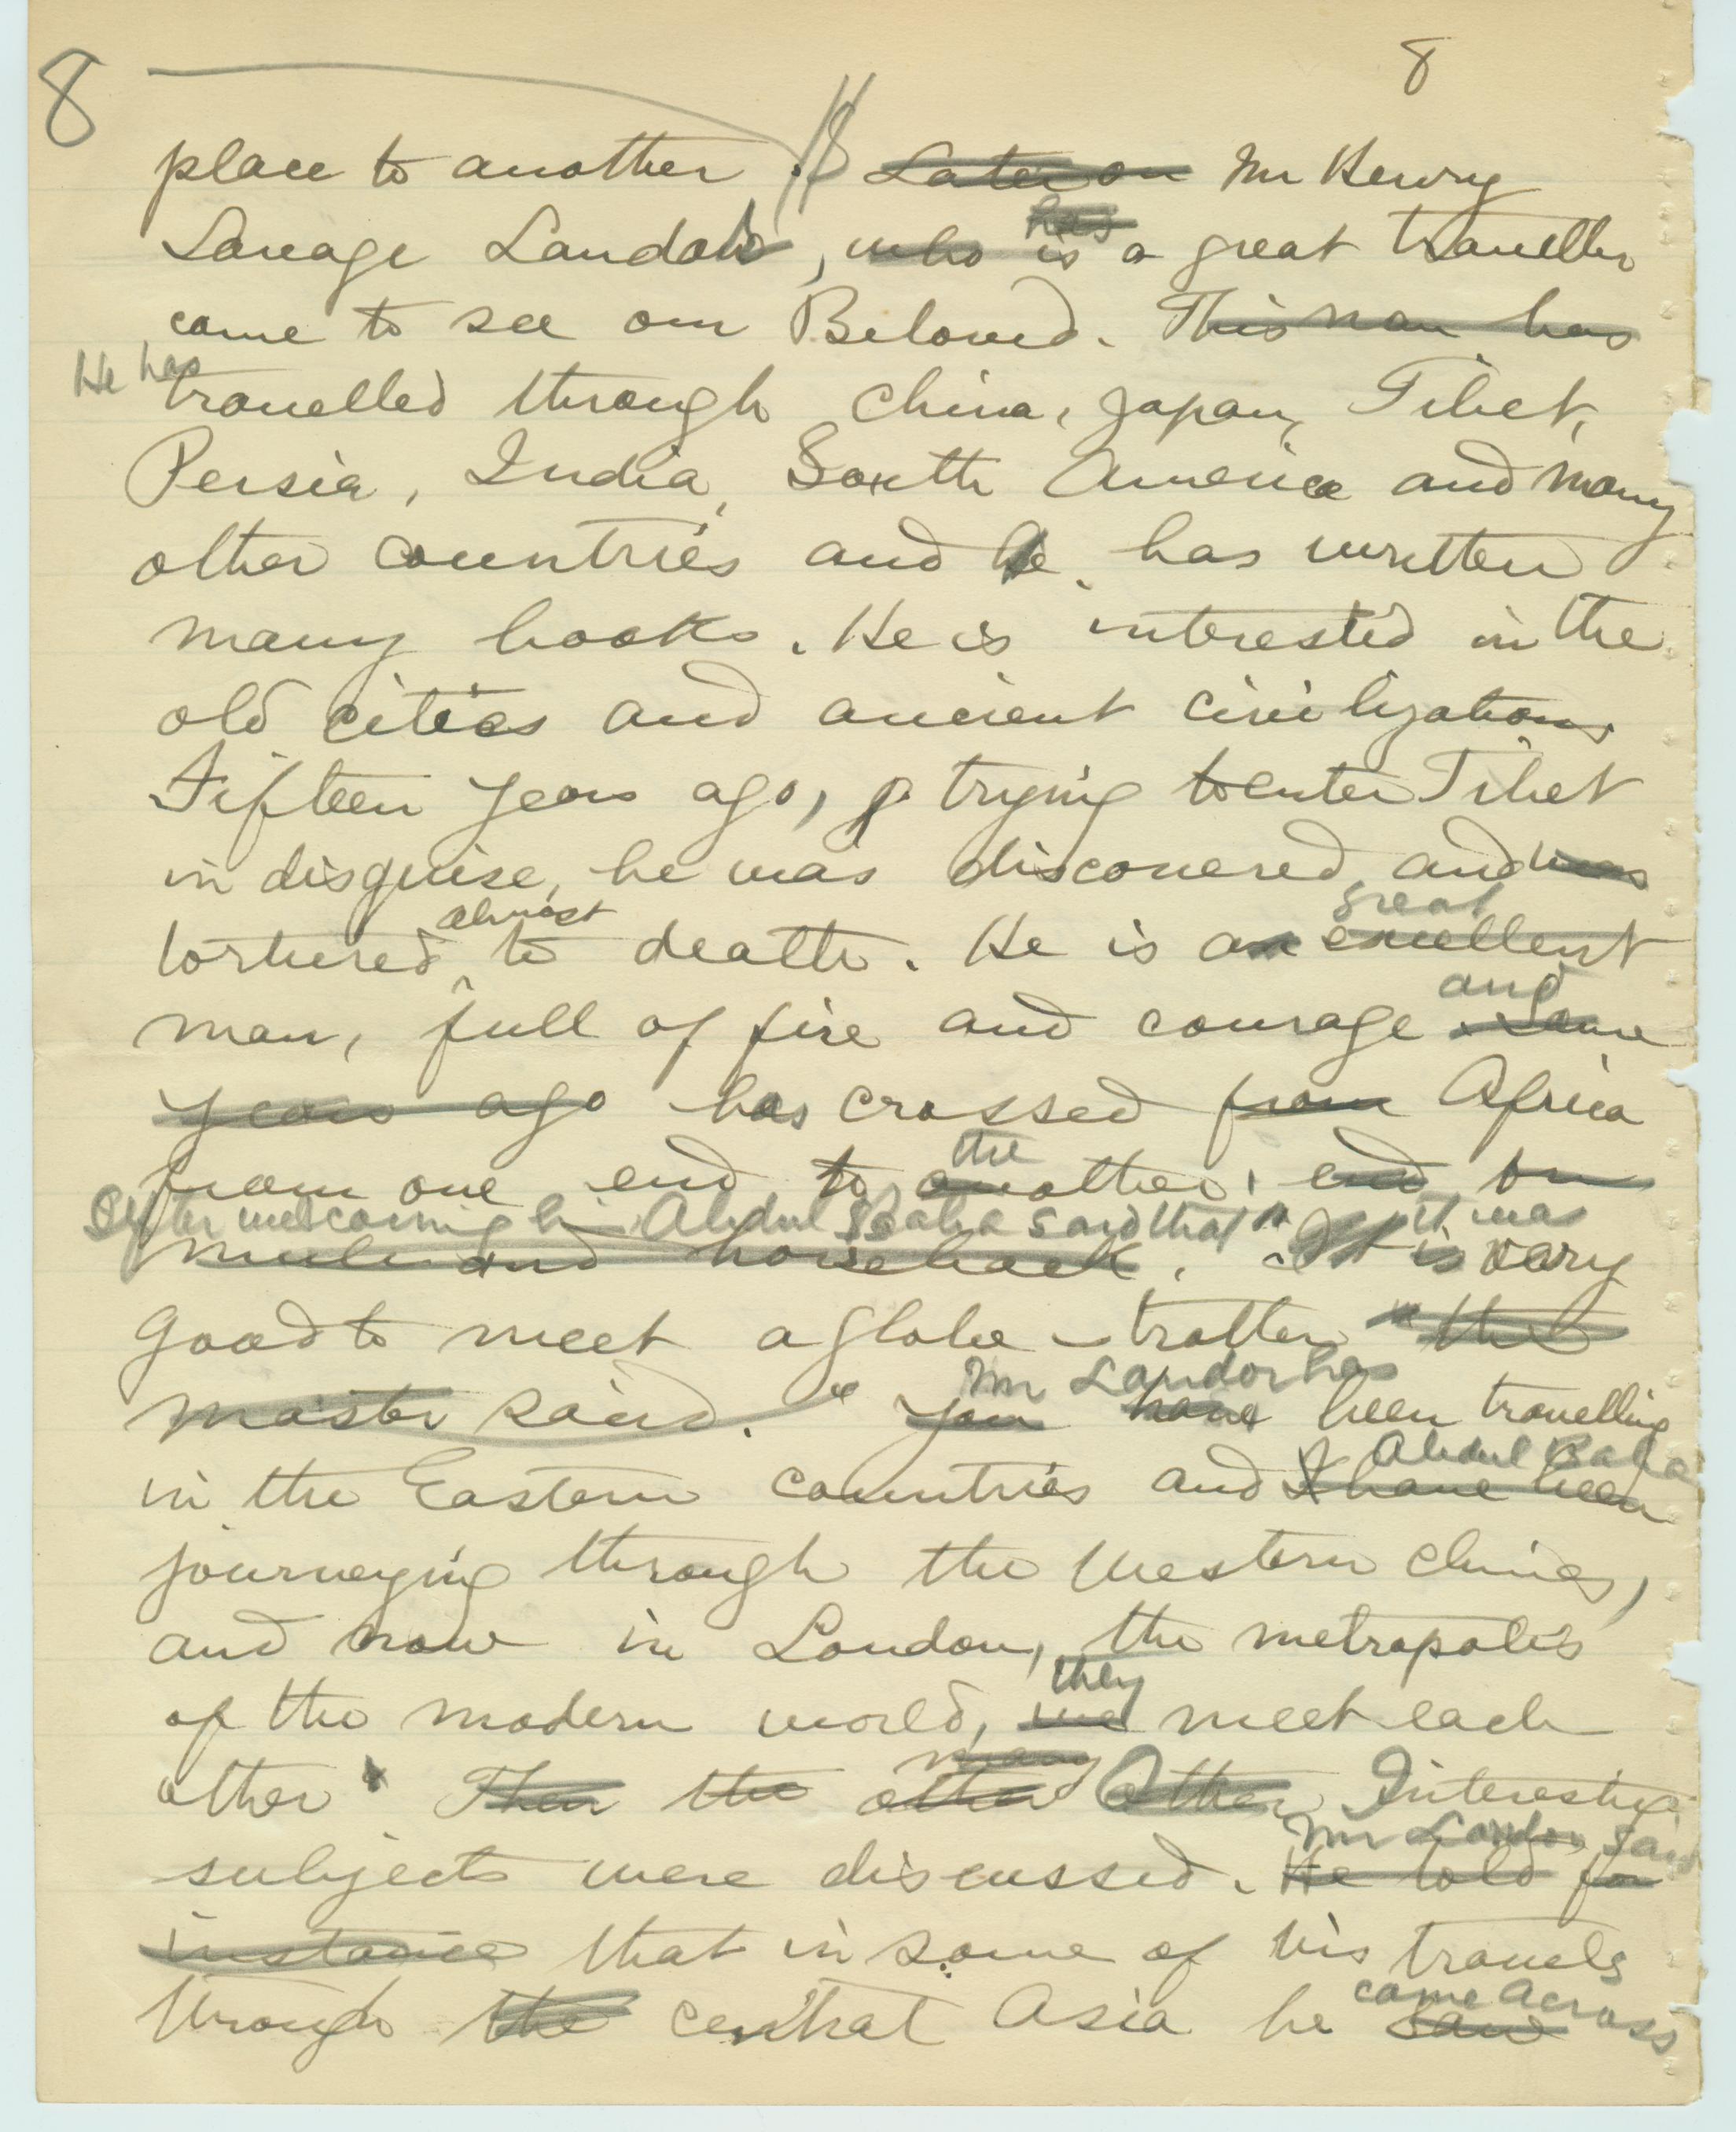 8 8
place to another. Later on Mr Henry
has
Savage Landor, who is a great traveller
came to see our Beloved. This man has
He has
travelled through China, Japan, Tibet,
Persia, India, South America and many
other countries and he has written
many books. He is interested in the
old cities and ancient civilizations.
Fifteen years ago, trying to enter Tibet
in disguise, he was discovered and was
almost great
tortured to death. He is an excellent
and
man, full of fire and courage. Some
years ago has crossed from Africa
the
from one end to another, end on
After welcoming him Abdul Baha said that " it was
mule and horseback. It is very
good to meet a globe-trotter" the
Mr Landor has
master said. " You have been travelling
Abdul Baha
in the Eastern countries and I have been
journeying through the Western climes,
and now in London, the metropolis
they
of the modern world, we meet each
many
other. Then the other Other Interesting
Mr Landor said
subjects were discussed. He told for
instance that in some of his travels
came across
through the central Asia he saw